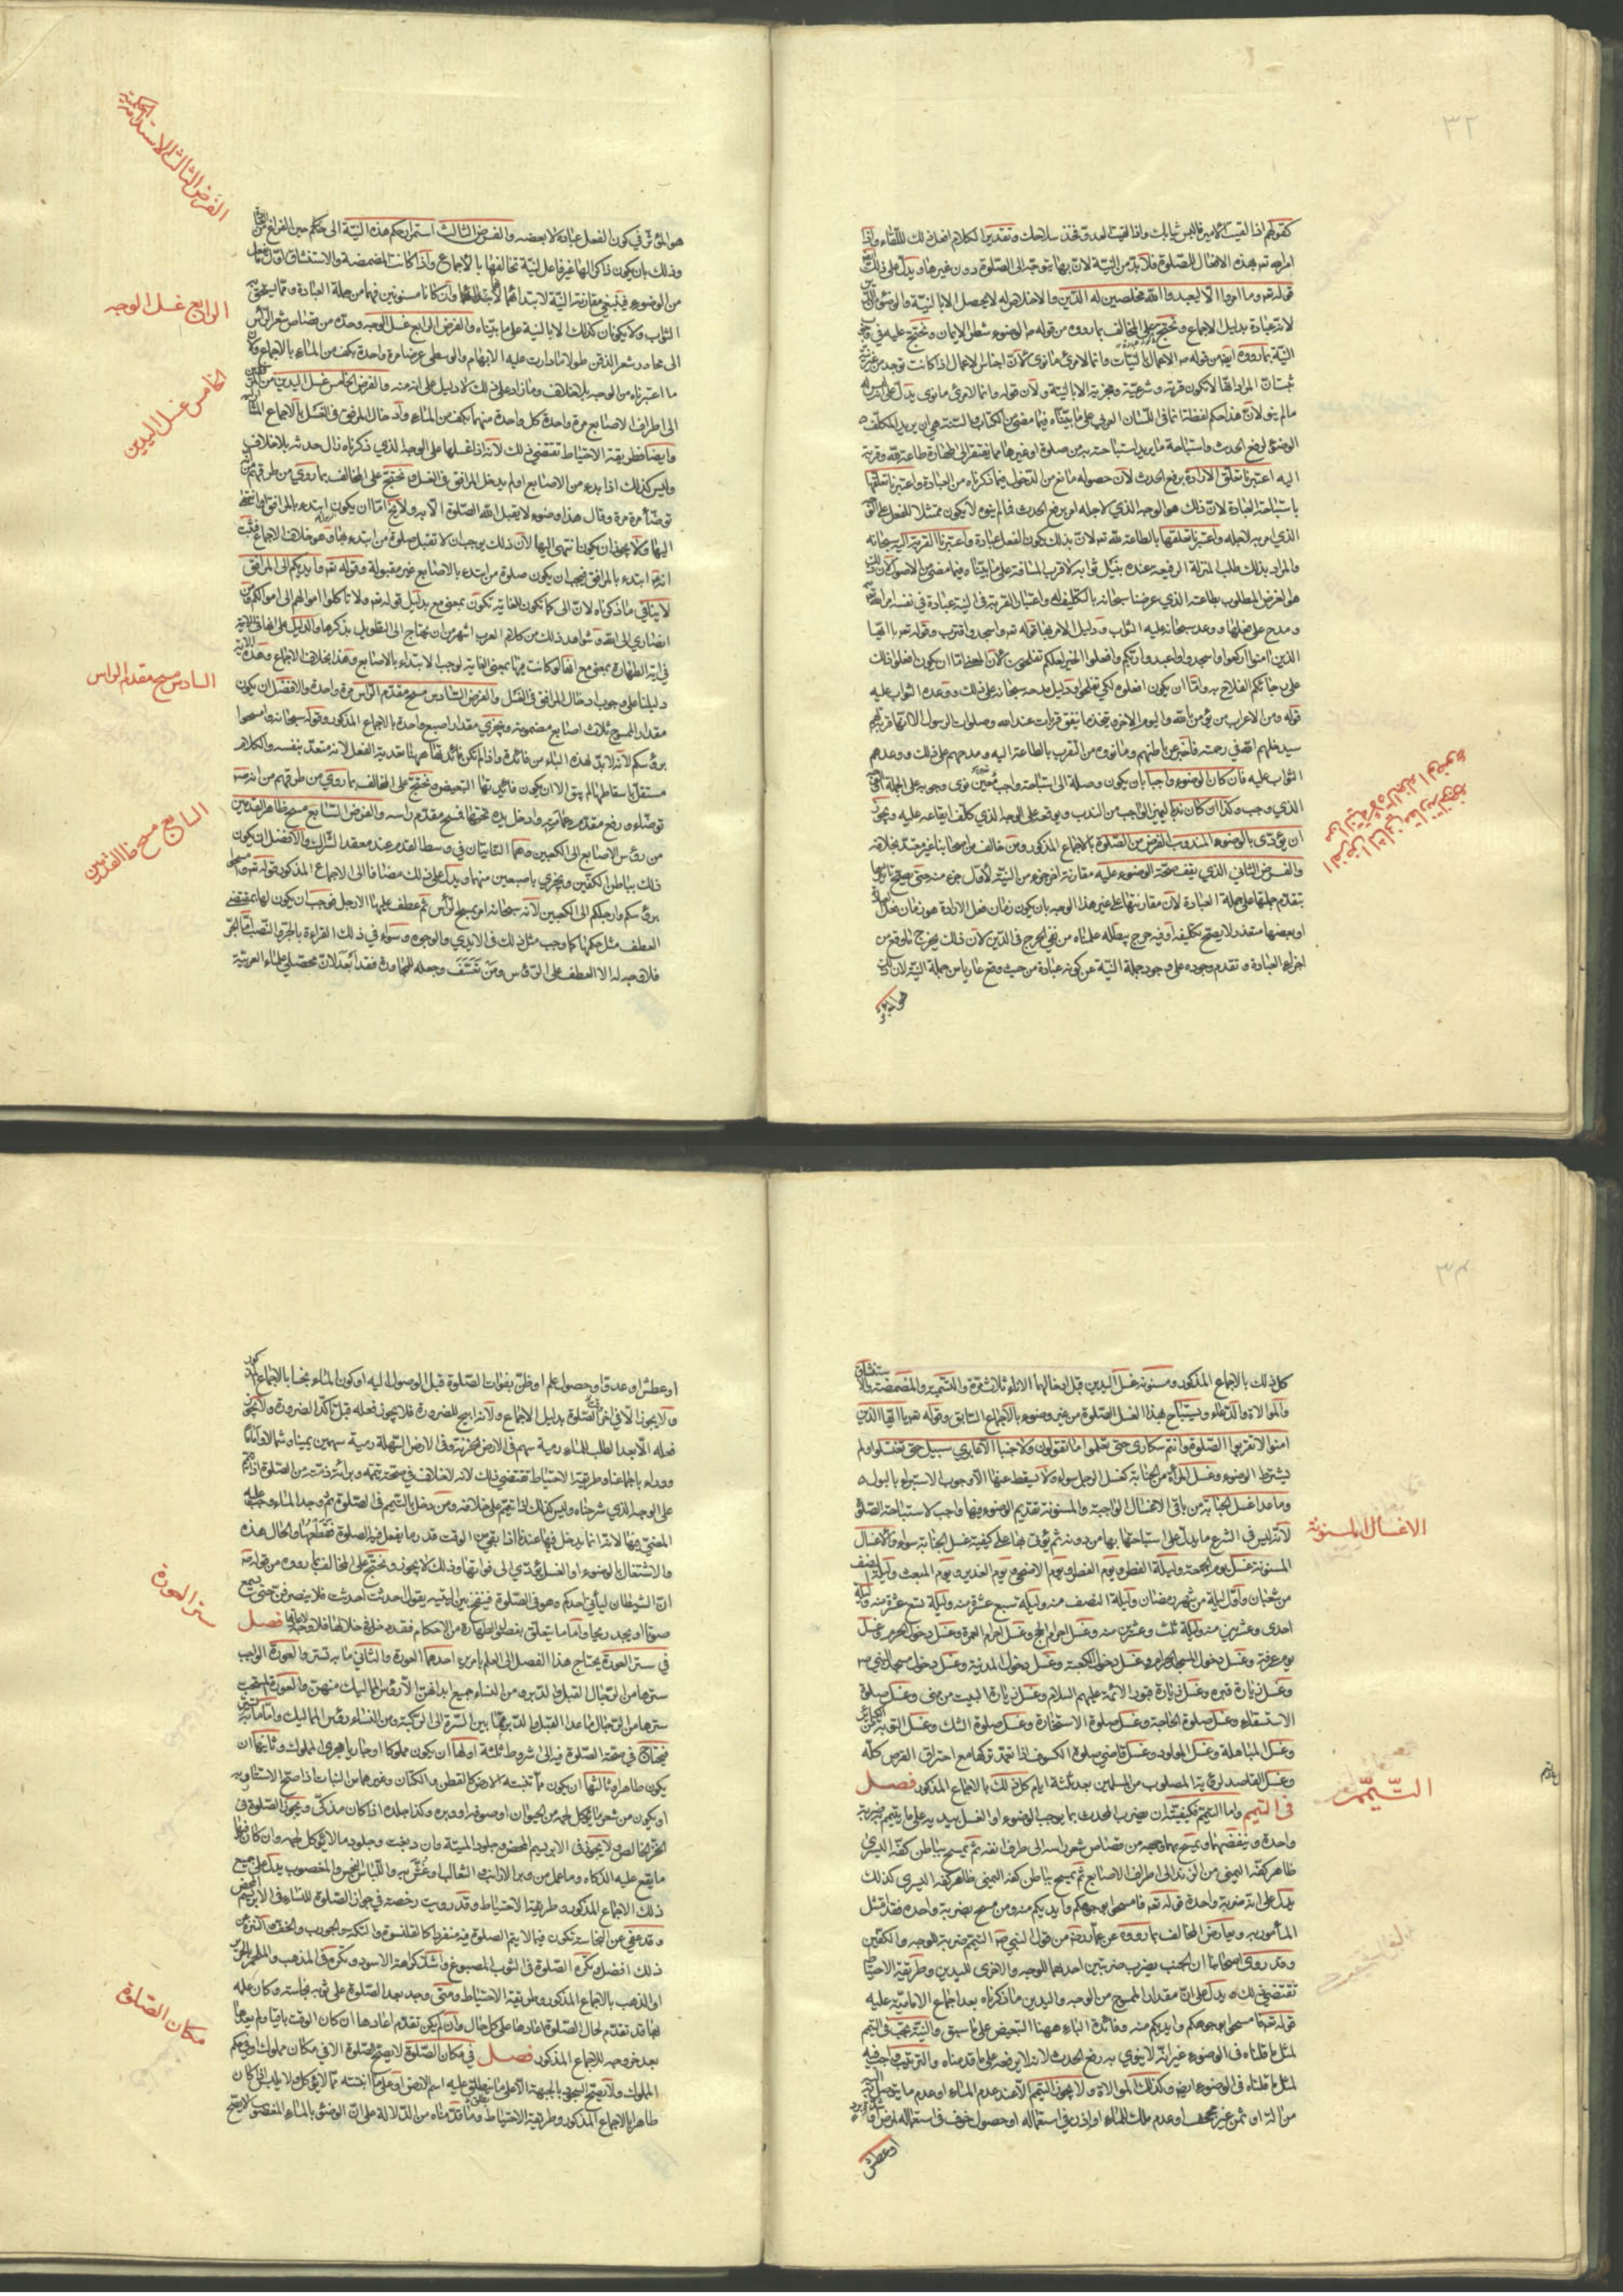 ٣٢
كقولهم اذا لقيت الامير فالبس ثيابك واذا لقيت العدو فخذ سلاحك وتقدير الكلام افعل ذلك للقاء واذا
امر الله تعالى بهذه الافعال للصلوة فلا بد من النية لان بها يتوجه الى الصلوة دون غيرها ويدل على ذلك
قوله تعالى وما امروا الا ليعبدوا الله مخلصين له الدين والاخلاص له لا يحصل الا بالنية والوضوء من الدين
لانه عبادة بدليل الاجماع ونحتج على المخالف بما رووه من قوله الوضوء شطر الايمان ونحتج عليه في وجوب
النية بما رووه ايضا من قوله الاعمال بالنيات وانما لامرئ ما نوى لان اجناس الاعمال اذا كانت توجد من غير نية
ثبت ان المراد انها لا تكون قربة وشرعية ومجزية الا بالنية ولان قوله وانما لامرئ ما نوى يدل على انه ليس له
ما لم ينو لان هذا حكم لفظة انما في اللسان العربي على ما بيناه فيما مضى من الكتاب والنية هي ان يريد المكلف
الوضوء لرفع الحدث واستباحة ما يريد استباحته به من صلوة او غيرها مما يفتقر الى طهارة طاعة لله وقربة
اليه اعتبرنا تعلق الارادة برفع الحدث لان حصوله مانع من الدخول فيما ذكرناه من العبادة واعتبرنا تعلقها
باستباحة العبادة لان ذلك هو الوجه الذي لاجله امر برفع الحدث فما لم ينوه لا يكون ممتثلا للفعل على الوجه
الذي امر به لاجله واعتبرنا تعلقها بالطاعة لله تعالى لان بذلك يكون الفعل عبادة واعتبرنا القربة اليه سبحانه
والمراد بذلك طلب المنزلة الرفيعة عنده بنيل ثوابه لا قرب المسافة على ما بيناه فيما مضى من الاصول لان ذلك
هو الغرض المطلوب بطاعته الذي عرضنا سبحانه بالتكليف له واعتبار القربة في النية عبادة في نفسه امر الله تعالى به
ومدح على فعلها ووعد سبحانه عليه الثواب ودليل الامر بها قوله تعالى واسجد واقترب وقوله تعالى يا ايها
الذين امنوا اركعوا واسجدوا واعبدوا ربكم وافعلوا الخير لعلكم تفلحون لان المعنى اما ان يكون افعلوا ذلك
على رجائكم الفلاح به واما ان يكون افعلوه لكي تفلحوا ودليل مدحه سبحانه على ذلك ووعده الثواب عليه
قوله ومن الاعراب من يؤمن بالله واليوم الاخر ويتخذ ما ينفق قربات عند الله وصلوات الرسول الا انها قربة لهم
سيدخلهم الله في رحمته فاخبر عن باطنهم وما نووه من التقرب بالطاعة اليه ومدحهم على ذلك ووعدهم
الثواب عليه فان كان الوضوء واجبا بان يكون وصلة الى استباحة واجب معين نوى وجوبه على الجملة او الوجه
الذي وجب وكذا ان كان ندبا ليميز الواجب من الندب ويوقعه على الوجه الذي كلف ايقاعه عليه ويجوز
ان يؤدى بالوضوء المندوب الفرض من الصلوة بالاجماع المذكور ومن خالف من اصحابنا غير معتد بخلافه
والفرض الثاني الذي يقف صحة الوضوء عليه مقارنة اخر جزء من النية لاول جزء منه حتى يصح تاثيرها
بتقدم جملتها على جملة العبادة لان مقارنتها على غير هذا الوجه بان يكون زمان فعل الارادة هو زمان فعل العبادة
او بعضها متعذر لا يصح تكليفه او فيه حرج يبطله ما علمناه من نفي الحرج في الدين لان ذلك يخرج ما وقع من
اجزاء العبادة وتقدم وجوده على وجود جملة النية عن كونه عبادة من حيث وقع عاريا من جملة النية لان ذلك
هو المؤثر
هو المؤثر في كون الفعل عبادة لا بعضه والفرض الثالث استمرار حكم هذه النية الى حين الفراغ من العبادة
وذلك بان يكون ذاكرا لها غير فاعل لنية تخالفها بالاجماع واذا كانت المضمضة والاستنشاق اول ما يفعل
من الوضوء فينبغي مقارنة النية لابتدائهما لانهما وان كانا مسنونين فهما من جملة العبادة ومما يستحق به
الثواب ولا يكونان كذلك الا بالنية على ما بيناه والفرض الرابع غسل الوجه وحده من قصاص شعر الراس
الى محادر شعر الذقن طولا وما دارت عليه الابهام والوسطى عرضا مرة واحدة بكف من الماء بالاجماع
ما اعتبرناه من الوجه بلا خلاف وما زاد على ذلك لا دليل على انه منه والفرض الخامس غسل اليدين من المرفقين
الى اطراف الاصابع مرة واحدة كل واحدة منهما بكف من الماء وادخال المرفق في الغسل بالاجماع المشار اليه
وايضا فطريقة الاحتياط تقتضي ذلك لانه اذا غسلها على الوجه الذي ذكرناه زال حدثه بلا خلاف
وليس كذلك اذا بدء من الاصابع او لم يدخل المرافق في الغسل ونحتج على المخالف بما روي من طرقهم من انه
توضا مرة مرة وقال هذا وضوء لا يقبل الله الصلوة الا به ولا يخ اما ان يكون ابتدء بالمرافق او انتهى
اليها ولا يجوز ان يكون انتهى اليها لان ذلك يوجب ان لا تقبل صلوة من ابتدء بها وهو خلاف الاجماع فثبت
انه ابتدء بالمرافق فيجب ان يكون صلوة من ابتدء بالاصابع غير مقبولة وقوله تعالى وايديكم الى المرافق
لا ينافي ما ذكرناه لان الى كما تكون للغاية تكون بمعنى مع بدليل قوله تعالى ولا تاكلوا اموالهم الى اموالكم ومن
انصاري الى الله وشواهد ذلك من كلام العرب اشهر من ان يحتاج الى التطويل بذكرها والدليل على انها في الاية
في اية الطهارة بمعنى مع انها لو كانت فيها بمعنى الغاية لوجب الابتداء بالاصابع وهذا بخلاف الاجماع وهذه الاية
دليلنا على وجوب ادخال المرافق في الغسل والفرض السادس مسح مقدم الراس مرة واحدة والافضل ان يكون
مقدار الممسوح ثلاث اصابع مضمومة ويجزي مقدار اصبع واحدة بالاجماع المذكور وقوله سبحانه وامسحوا
برؤسكم لانه لا بد لهذه الباء من فائدة واذا لم تكن فائدتها ههنا تعدية الفعل لانه متعد بنفسه والكلام
مستقل باسقاطها لم يبق الا ان يكون فائدتها التبعيض ونحتج على المخالف بما روي من طرقهم من انه
توضاء ورفع مقدم عمامته وادخل يده تحتها فمسح مقدم راسه والفرض السابع مسح ظاهر القدمين
من رؤس الاصابع الى الكعبين وهما النابتان في وسط القدم عند معقد الشراك والافضل ان يكون
ذلك بباطن الكفين ويجزي باصبعين منهما ويدل على ذلك مضافا الى الاجماع المذكور قوله تعالى وامسحوا
برؤسكم وارجلكم الى الكعبين لانه سبحانه امر بمسح الراس ثم عطف عليها الارجل فوجب ان يكون لها بمقتضى
العطف مثل حكمها كما وجب مثل ذلك في الايدي والوجوه وسواء في ذلك القراءة بالجر والنصب اما الجر
فلا وجه له الا العطف على الرؤس ومن تعسف وجعله للمجاورة فقد ابعد لان محصلي علماء العربية
الفرض الثالث الاستدامة الحكمية
الرابع غسل الوجه
الخامس غسل اليدين
السادس مسح مقدم الراس
السابع مسح ظاهر القدمين
كل ذلك بالاجماع المذكور ومسنونه غسل اليدين قبل ادخالهما الاناء ثلاث مرة والتسمية والمضمضة والاستنشاق
والموالاة والدعاء ويستباح بهذا الغسل الصلوة من غير وضوء بالاجماع السابق وقوله يا ايها الذين
امنوا لا تقربوا الصلوة وانتم سكارى حتى تعلموا ما تقولون ولا جنبا الا عابري سبيل حتى تغتسلوا ولم
يشترط الوضوء وغسل المراة من الجنابة كغسل الرجل سواء ولا يسقط عنها الا وجوب الاستبراء بالبول
وما عدا غسل الجنابة من باقي الاغسال الواجبة والمسنونة تقديم الوضوء فيها واجب لاستباحة الصلوة
لانه ليس في الشرع ما يدل على استباحتها بها من دونه ثم يؤتى بها على كيفية غسل الجنابة سواء والاغسال
المسنونة غسل يوم الجمعة وليلة الفطر ويوم الفطر ويوم الاضحى ويوم الغدير ويوم المبعث وليلة النصف
من شعبان واول ليلة من شهر رمضان وليلة النصف منه وليلة سبع عشرة منه وليلة تسع عشرة منه وليلة
احدى وعشرين منه وليلة ثلث وعشرين منه وغسل احرام الحج وغسل احرام العمرة وغسل دخول الحرم وغسل
يوم عرفة وغسل دخول المسجد الحرام وغسل دخول الكعبة وغسل دخول المدينة وغسل دخول مسجد النبي
وغسل زيارة قبره وغسل زيارة قبور الائمة عليهم السلام وغسل زيارة البيت من منى وغسل صلوة
الاستسقاء وغسل صلوة الحاجة وغسل صلوة الاستخارة وغسل صلوة الشكر وغسل التوبة من الكبائر
وغسل المباهلة وغسل المولود وغسل قاضي صلوة الكسوف اذا تعمد تركها مع احتراق القرص كله
وغسل القاصد لرؤية المصلوب من المسلمين بعد ثلثة ايام كل ذلك بالاجماع المذكور فصل
في التيمم واما التيمم فكيفيته ان يضرب المحدث بما يوجب الوضوء او الغسل بيديه على ما يتيمم به ضربة
واحدة وينفضهما ويمسح بهما وجهه من قصاص شعر راسه الى طرف انفه ثم يمسح بباطن كفه اليسرى
ظاهر كفه اليمنى من الزند الى اطراف الاصابع ثم يمسح بباطن كفه اليمنى ظاهر كفه اليسرى كذلك
يدل على انه ضربة واحدة قوله تعالى فامسحوا بوجوهكم وايديكم منه ومن مسح بضربة واحدة فقد امتثل
المأمور به ويعارض المخالف بما رووه عن عمار من قول النبي التيمم ضربة للوجه والكفين
وقد روى اصحابنا ان الجنب يضرب ضربتين احدهما للوجه والاخرى لليدين وطريقة الاحتياط
تقتضي ذلك ويدل على ان مقدار الممسوح من الوجه واليدين ما ذكرناه بعد اجماع الامامية عليه
قوله تعالى فامسحوا بوجوهكم وايديكم منه وفائدة الباء ههنا التبعيض على ما سبق والنية تجب في التيمم
لمثل ما قلناه في الوضوء غير انه لا ينوي به رفع الحدث لانه لا يرفعه على ما قدمناه والترتيب واجب فيه
لمثل ما قلناه في الوضوء ايضا وكذلك الموالاة ولا يجوز التيمم الا عند عدم الماء او عدم ما يتوصل به اليه
من الة او ثمن غير مجحف او عدم مالك للماء او اذن في استعماله او حصول خوف في استعماله لمرض او
او عطش
الاغسال المسنونة
التيمم
او عطش او عدو او حصول علم او ظن بفوات الصلوة قبل الوصول اليه او كون الماء نجسا بالاجماع المذكور
ولا يجوز الا في اخر وقت الصلوة بدليل الاجماع ولانه ابيح للضرورة فلا يجوز فعله قبل تاكد الضرورة ولا يجوز
فعله الا بعد الطلب للماء رمية سهم في الارض الحزنة وفي الارض السهلة رمية سهمين يمينا وشمالا واماما
ووراء باجماعنا وطريقة الاحتياط تقتضي ذلك لانه لا خلاف في صحة تيممه وبراءة ذمته من الصلوة اذا تيمم
على الوجه الذي شرحناه وليس كذلك اذا تيمم على خلافه ومن دخل بالتيمم في الصلوة ثم وجد الماء وجب عليه
المضي فيها لانه انما يدخل فيها عندنا اذا بقي من الوقت قدر ما يفعل فيه الصلوة فقطعها والحال هذه
والاشتغال بالوضوء او الغسل يؤدي الى فواتها وذلك لا يجوز ونحتج على المخالف بما رووه من قوله
ان الشيطان لياتي احدكم وهو في الصلوة فينفخ بين اليتيه يقول احدثت احدثت فلا ينصرفن حتى يسمع
صوتا او يجد ريحا واما ما يتعلق بفصل الطهارة من الاحكام فقد دخل في خلالها فلا وجه لاعادتها فصل
في ستر العورة يحتاج هذا الفصل الى العلم بامرين احدهما العورة والثاني ما به تستر والعورة الواجب
سترها من الرجال القبل والدبر ومن النساء جميع ابدانهن الا رؤس المماليك منهن والعورة المستحب
سترها من الرجال ما عدا القبل والدبر مما بين السرة الى الركبة ومن النساء رؤس المماليك واما ما به تستتر
فيحتاج في صحة الصلوة فيه الى شروط ثلثة اولها ان يكون مملوكا او جاريا مجرى المملوك وثانيها ان
يكون طاهرا وثالثها ان يكون مما تنبته الارض كالقطن والكتان وغيرهما من النبات اذا صح الاستتار به
او يكون من شعر ما يؤكل لحمه من الحيوان او صوفه او وبره وكذا جلده اذا كان مذكى ويجوز الصلوة في
الخز الخالص ولا يجوز في الابريسم المحض وجلود الميتة وان دبغت وجلود ما لا يؤكل لحمه وان كان فيها
ما يقع عليه الذكاة وما عمل من وبر الارانب والثعالب او غش به واللباس النجس والمغصوب يدل على جميع
ذلك الاجماع المذكور وطريقة الاحتياط وقد رويت رخصة في جواز الصلوة للنساء في الابريسم المحض
وقد عفي عن النجاسة تكون فيما لا يتم الصلوة فيه منفردا كالقلنسوة والتكة والجورب والخف والتنزه عن
ذلك افضل وتكره الصلوة في الثوب المصبوغ واشد كراهة الاسود وتكره في المذهب والملحم بالحرير
او الذهب بالاجماع المذكور وطريقة الاحتياط ومتى وجد بعد الصلوة على ثوبه نجاسة وكان علمه
بها قد تقدم لحال الصلوة اعادها على كل حال وان لم يكن تقدم اعادها ان كان الوقت باقيا ولم يعدها
بعد خروجه للاجماع المذكور فصل في مكان الصلوة لا يصح الصلوة الا في مكان مملوك او في حكم
المملوك ولا يصح السجود بالجبهة الا على ما يطلق عليه اسم الارض او على ما انبتته مما لا يؤكل ولا يلبس اذا كان
طاهرا بالاجماع المذكور وطريقة الاحتياط وما قدمناه من الدلالة على ان الوضوء بالماء المغصوب لا يصح
ستر العورة
مكان الصلوة